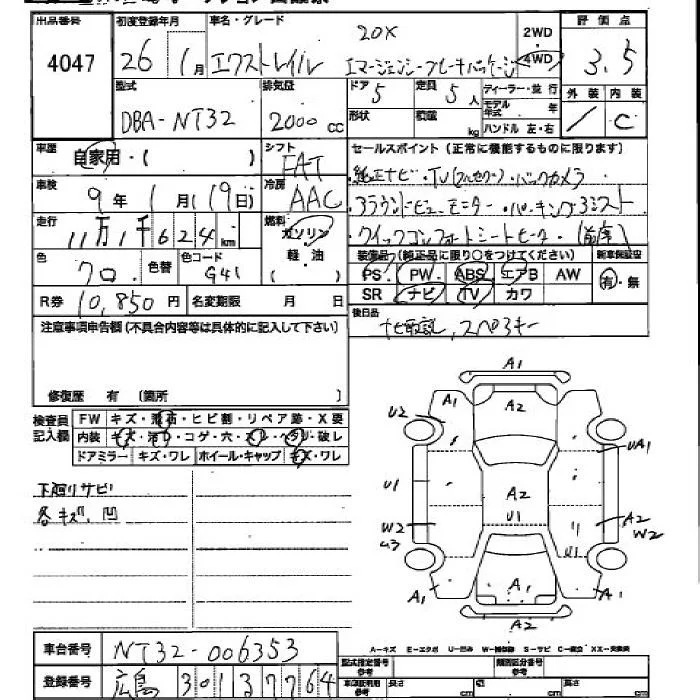 出品番号 初度登録年月 車名・グレード 2WD 評価点
4047 26年 1月 エクストレイル 20X エマージェンシーブレーキパッケージ 4WD 3.5
型式 排気量 ドア 5 定員 5人 ディーラー・並行 外装 内装
DBA-NT32 2000cc 形状 積載 kg モデル年式 年 ハンドル 左・右 C
車歴 自家用・( ) シフト FAT セールスポイント(正常に機能するものに限ります)
車検 9年 1月(19日) 冷房 AAC ・純正ナビ・TV(フルセグ)・バックカメラ
走行 11万1千624km 燃料 ガソリン 軽油 ・アラウンドビューモニター・パーキングアシスト
・クイックコンフォートシートヒーター(前席)
色 クロ 色替 色コード G41 装備品(純正品に限り○をつけてください) 新車保証書
PS PW ABS エアB AW 有・無
R券 10,850円 名変期限 月 日 SR ナビ TV カワ
注意事項申告欄(不具合内容等は具体的に記入して下さい) 後日品
ナビ取説、スペアキー
修復歴 有 (箇所 )
検査員記入欄 FW キズ・飛石・ヒビ割・リペア跡・X要
内装
ドアミラー キズ・ワレ ホイール・キャップ キズ・ワレ
下廻りサビ
各キズ、凹
A1
A1 A2
U2 UA1
U1 A2
U1
W2 A2 W2
U1
A1 A1 A1
A2
車台番号 NT32-006353
登録番号 広島 301 3 7764
型式指定番号 類別区分番号
長さ cm 幅 cm 高さ cm